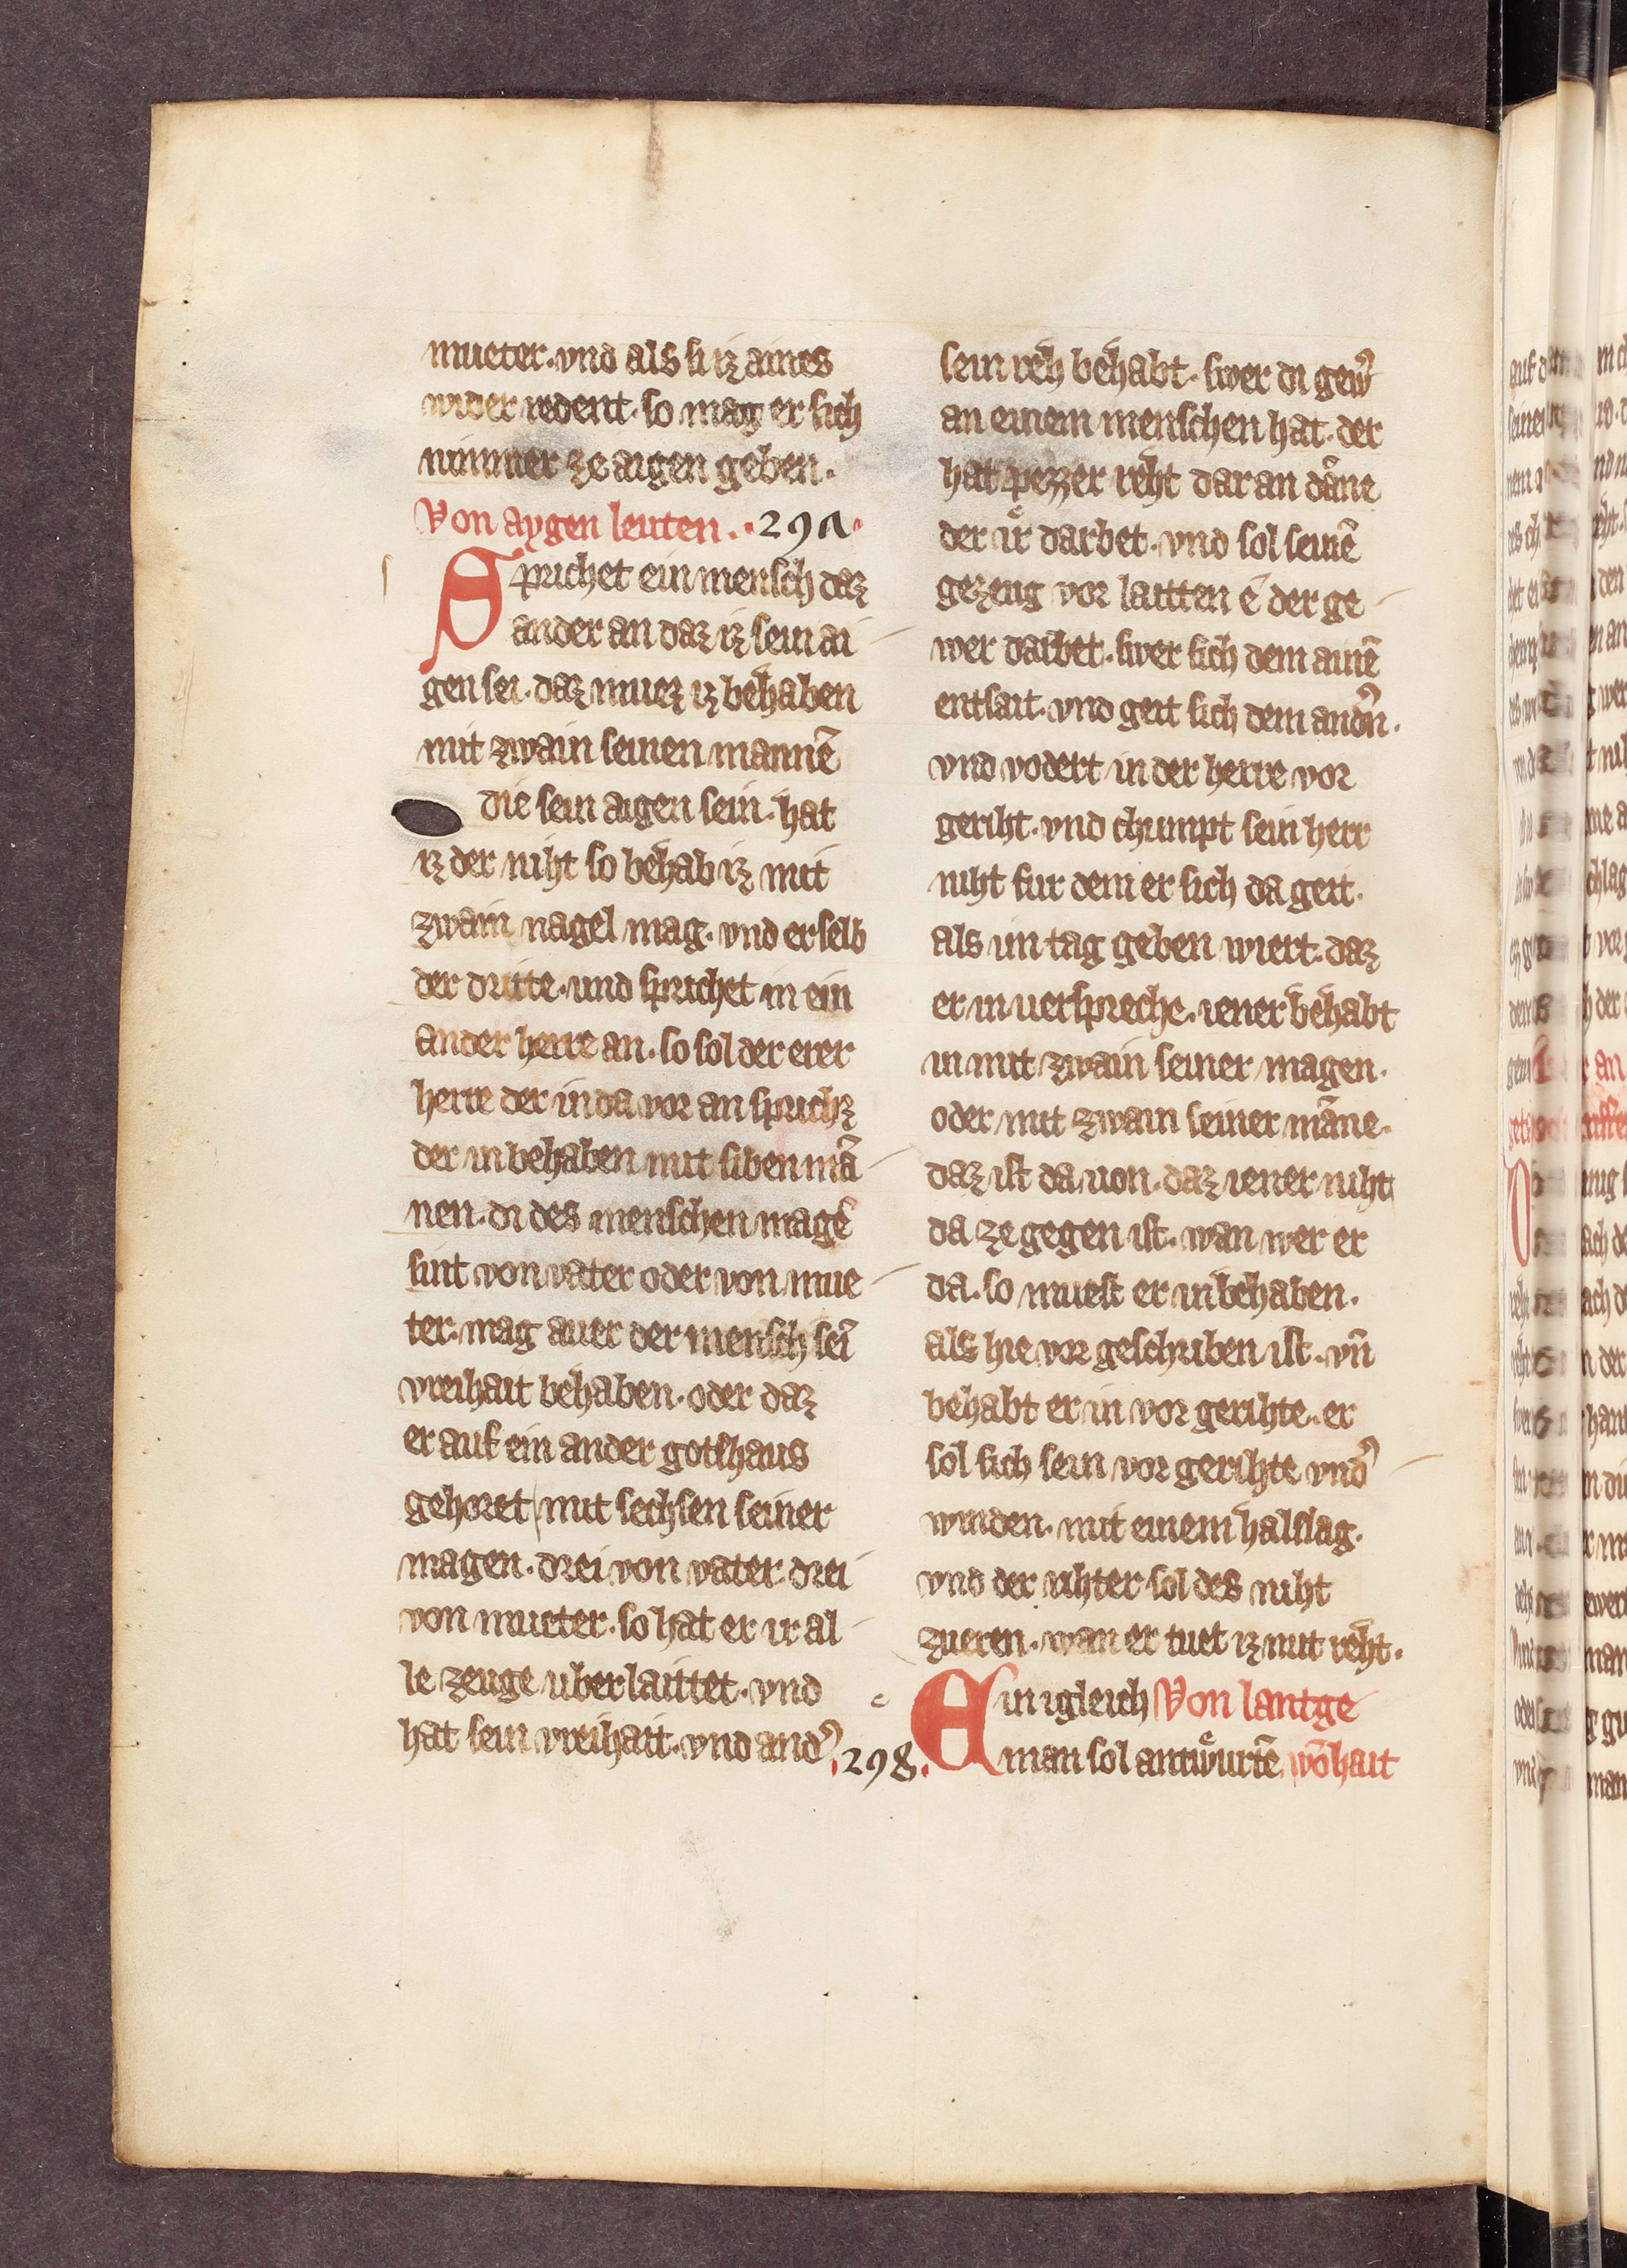 mueter. vnd als si iz aines
wider redent. so mag er sich
nimmer ze aigen geben.
Von aygen leuten. 297.
Sprichet ein mensch daz
ander an daz iz sein ai
gen sei. daz muez iz behaben
mit zwain seinen mannē
die sein aigen sein. hat
iz der niht so behab iz mit
zwain nagel mag. vnd er selb
der dritte. und sprichet in ein
ander herre an. so sol der erer
herre der in da vor an sprichz
der in behaben mit siben mā
nen. di des menschen magē
sint von vater oder von mue
ter. mag auer der mensch sei
vreihait behaben. oder daz
er auf ein ander gotshaus
gehoret mit sechsen seiner
magen. drei von vater drei
von mueter. so hat er ir al
le zeuge uberlaittet. vnd
hat sein vreihait. vnd and͛
sein reh behabt. swer di gew͛
an einem menschen hat. der
hat pezzer reht dar an dāne
der ir darbet. vnd sol seinē
gezeug vor laitten e der ge
wer darbet. swer sich dem ainē
entsait. vnd geit sich dem andn͛.
vnd vodert in der herre vor
geriht. vnd chumpt sein herr
niht fur dem er sich da geit.
als im tag geben wiert. daz
er in uerspreche. iener behabt
in mit zwain seiner magen.
oder mit zwain seiner māne.
daz ist da uon. daz iener niht
da ze gegen ist. wan wer er
da. so muest er in behaben.
als hie vor geschriben ist. vn̄
behabt er in vor gerihte. er
sol sich sein vor gerihte vnd͛
winden. mit einem halslag.
vnd der rihter sol des niht
zueren. wan er tuet iz mit reht.
Ein igleich Von lantge
298. man sol antwurtē wōhait